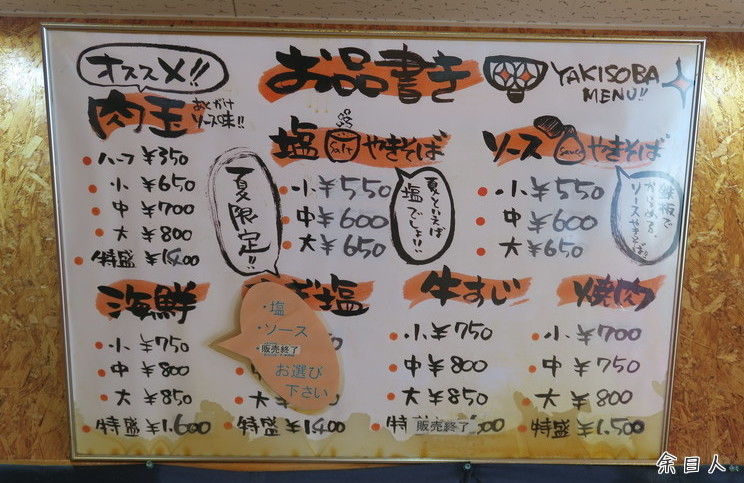 お品書き
YAKISOBA
MENU!!
オススメ!!
肉玉
あんかけ
ソース味!!
ハーフ ¥350
小 ¥650
中 ¥700
大 ¥800
特盛 ¥1,400
夏限定!!
塩 Salt やきそば
小 ¥550
中 ¥600
大 ¥650
夏といえば
塩でしょ!!
ソース sauce やきそば
小 ¥550
中 ¥600
大 ¥650
ソースやきそば
海鮮
小 ¥750
中 ¥800
大 ¥850
特盛 ¥1.600
ぎ塩
・塩
・ソース
・販売終了
お選び
下さい
大
特盛 ¥1400
牛すじ
小 ¥750
中 ¥800
大 ¥850
特
販売終了
00
焼肉
小 ¥700
中 ¥750
大 ¥800
特盛 ¥1.500
余目人